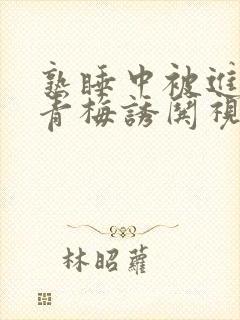 熟睡中被進
青梅誘関視
林昭蘿